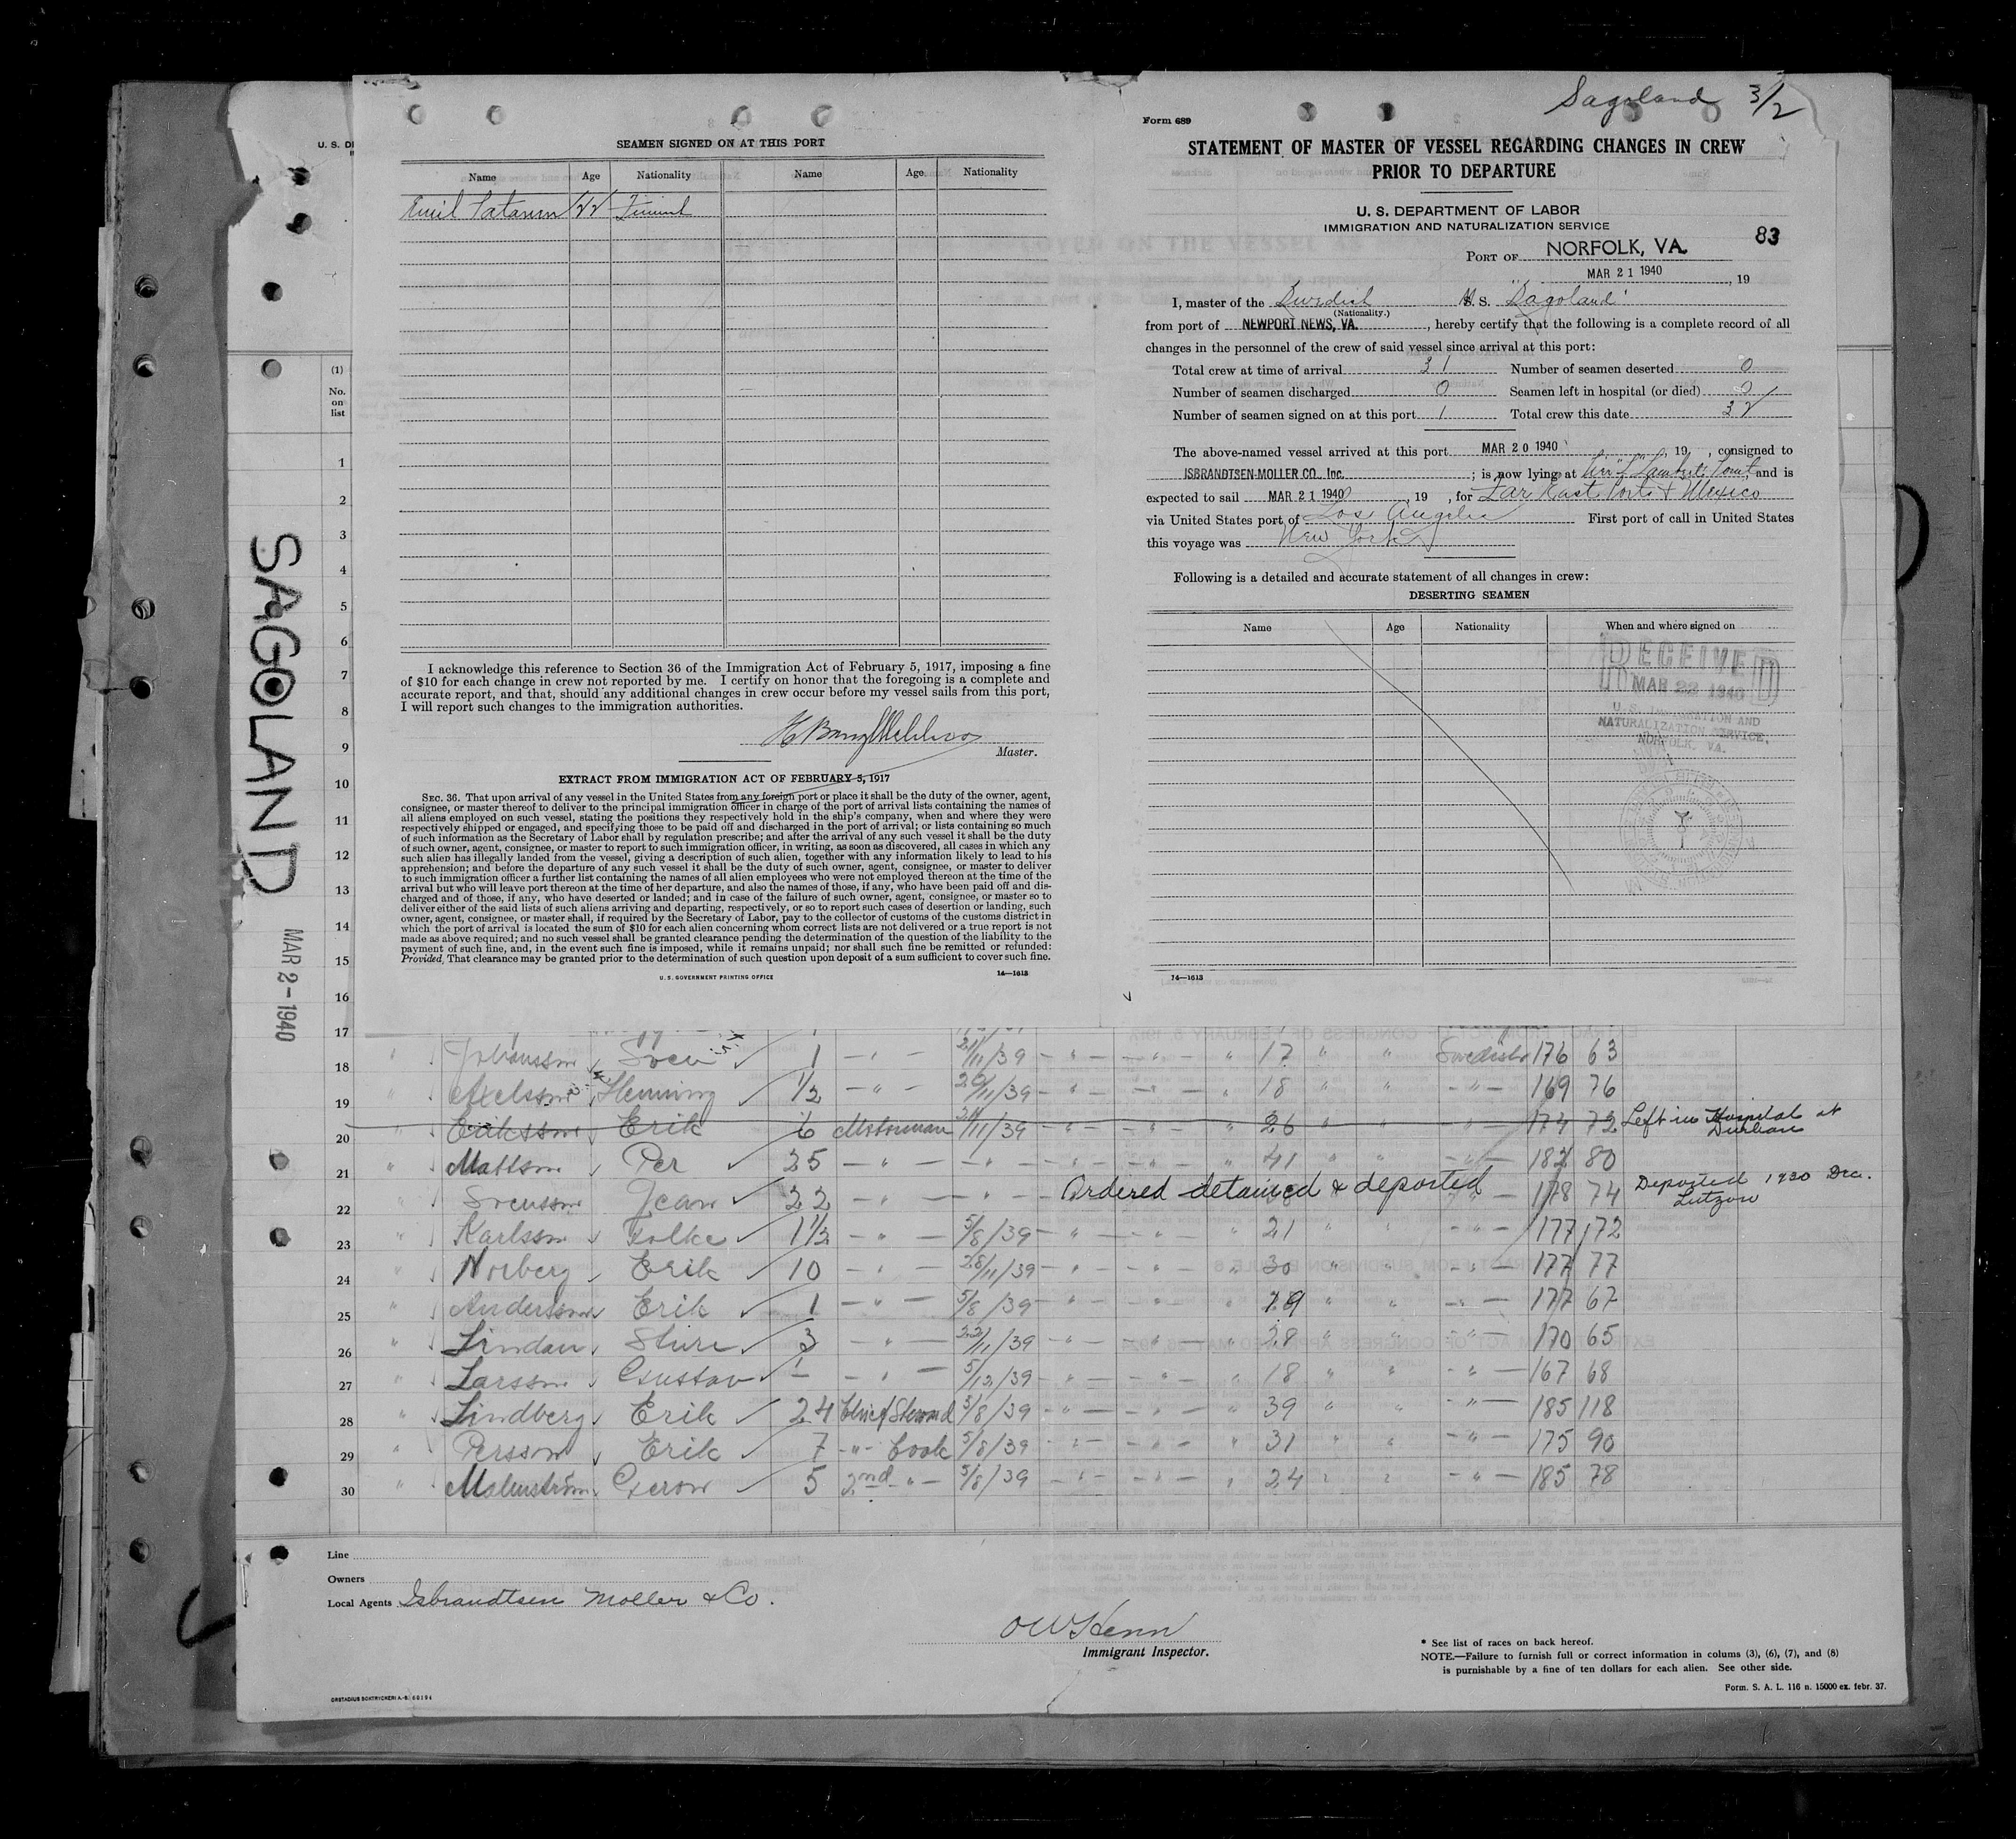 Sagoland 3/2
U. S. DE
SEAMEN SIGNED ON AT THIS PORT
Name Age Nationality Name Age Nationality
Emil 22
I acknowledge this reference to Section 36 of the Immigration Act of February 5, 1917, imposing a fine
of $10 for each change in crew not reported by me. I certify on honor that the foregoing is a complete and
accurate report, and that, should any additional changes in crew occur before my vessel sails from this port,
I will report such changes to the immigration authorities.
Master.
EXTRACT FROM IMMIGRATION ACT OF FEBRUARY 5, 1917
SEC. 36. That upon arrival of any vessel in the United States from any foreign port or place it shall be the duty of the owner, agent,
consignee, or master thereof to deliver to the principal immigration officer in charge of the port of arrival lists containing the names of
all aliens employed on such vessel, stating the positions they respectively hold in the ship's company, when and where they were
respectively shipped or engaged, and specifying those to be paid off and discharged in the port of arrival; or lists containing so much
of such information as the Secretary of Labor shall by regulation prescribe; and after the arrival of any such vessel it shall be the duty
of such owner, agent, consignee, or master to report to such immigration officer, in writing, as soon as discovered, all cases in which any
such alien has illegally landed from the vessel, giving a description of such alien, together with any information likely to lead to his
apprehension; and before the departure of any such vessel it shall be the duty of such owner, agent, consignee, or master to deliver
to such immigration officer a further list containing the names of all alien employees who were not employed thereon at the time of the
arrival but who will leave port thereon at the time of her departure, and also the names of those, if any, who have been paid off and dis-
charged and of those, if any, who have deserted or landed; and in case of the failure of such owner, agent, consignee, or master so to
deliver either of the said lists of such aliens arriving and departing, respectively, or so to report such cases of desertion or landing, such
owner, agent, consignee, or master shall, if required by the Secretary of Labor, pay to the collector of customs of the customs district in
which the port of arrival is located the sum of $10 for each alien concerning whom correct lists are not delivered or a true report is not
made as above required; and no such vessel shall be granted clearance pending the determination of the question of the liability to the
payment of such fine, and, in the event such fine is imposed, while it remains unpaid; nor shall such fine be remitted or refunded:
Provided, That clearance may be granted prior to the determination of such question upon deposit of a sum sufficient to cover such fine.
U. S. GOVERNMENT PRINTING OFFICE 14—1613
Form 689
STATEMENT OF MASTER OF VESSEL REGARDING CHANGES IN CREW
PRIOR TO DEPARTURE
U. S. DEPARTMENT OF LABOR
IMMIGRATION AND NATURALIZATION SERVICE
83
PORT OF NORFOLK, VA.
MAR 21 1940, 19
I, master of the Swedish M. S. "Sagoland"
(Nationality.)
from port of NEWPORT NEWS, VA., hereby certify that the following is a complete record of all
changes in the personnel of the crew of said vessel since arrival at this port:
Total crew at time of arrival 31 Number of seamen deserted 0
Number of seamen discharged 0 Seamen left in hospital (or died) 0
Number of seamen signed on at this port 1 Total crew this date 32
The above-named vessel arrived at this port MAR 20 1940, 19 , consigned to
ISBRANDTSEN-MOLLER CO., Inc. ; is now lying at Pier "L" Lamberts Point, and is
expected to sail MAR 21 1940, 19 , for Far East Ports & Mexico
via United States port of Los Angeles First port of call in United States
this voyage was New York
Following is a detailed and accurate statement of all changes in crew:
DESERTING SEAMEN
Name Age Nationality When and where signed on
RECEIVED
MAR 22 1940
U. S. IMMIGRATION AND
NATURALIZATION SERVICE,
NORFOLK, VA.
14—1613
SAGOLAND
MAR 2-1940
(1)
No.
on
list
1
2
3
4
5
6
7
8
9
10
11
12
13
14
15
16
17
18 " Johansson Sven 1 — " — 21/11/39 — " — — " — " 17 " " Swedish 176 63
19 " Axelsson Henning 1/2 — " — 20/11/39 — " — — " — " 18 " " — " — 169 76
20 " Eriksson Erik 6 Motorman 21/11/39 — " — — " — " 26 " " — " — 174 72 Left in Hospital at Durban
21 " Mattsson Per 25 — " — — " — — " — — " — " 41 " " — " — 182 80
22 " Svensson Jean 22 — " — — " — Ordered detained & deported — 178 74 Deported 1930 Dra. Lutzow
23 " Karlsson Folke 1 1/2 — " — 5/8/39 — " — — " — " 21 " " — " — 177 72
24 " Norberg Erik 10 — " — 28/11/39 — " — — " — " 30 " " — " — 177 77
25 " Andersson Erik 1 — " — 5/8/39 — " — — " — " 19 " " — " — 177 67
26 " Lindau Sture 3 — " — 22/11/39 — " — — " — " 28 " " — " — 170 65
27 " Larsson Gustav — — " — 5/12/39 — " — — " — " 18 " " — " — 167 68
28 " Lindberg Erik 24 Chief Steward 3/8/39 — " — — " — " 39 " " — " — 185 118
29 " Persson Erik 7 — " — Cook 5/8/39 — " — — " — " 31 " " — " — 175 90
30 " Malmström 5 2nd — " — 5/8/39 — " — — " — " 24 " " — " — 185 78
Line
Owners
Local Agents Isbrandtsen Moller & Co.
Immigrant Inspector.
* See list of races on back hereof.
NOTE.—Failure to furnish full or correct information in colums (3), (6), (7), and (8)
is purnishable by a fine of ten dollars for each alien. See other side.
ORSTADIUS BOKTRYCKERI A.-B. 40194
Form. S. A. L. 116 n. 15000 ex. febr. 37.